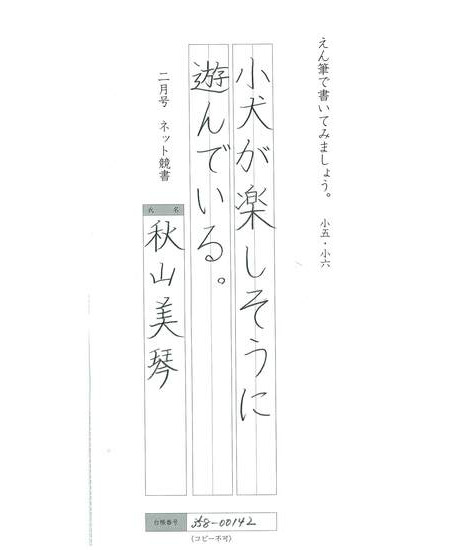 えん筆で書いてみましょう。 小五・小六
小犬が楽しそうに
遊んでいる。
二月号 ネット競書
氏名
秋山美琴
台帳番号
(コピー不可)